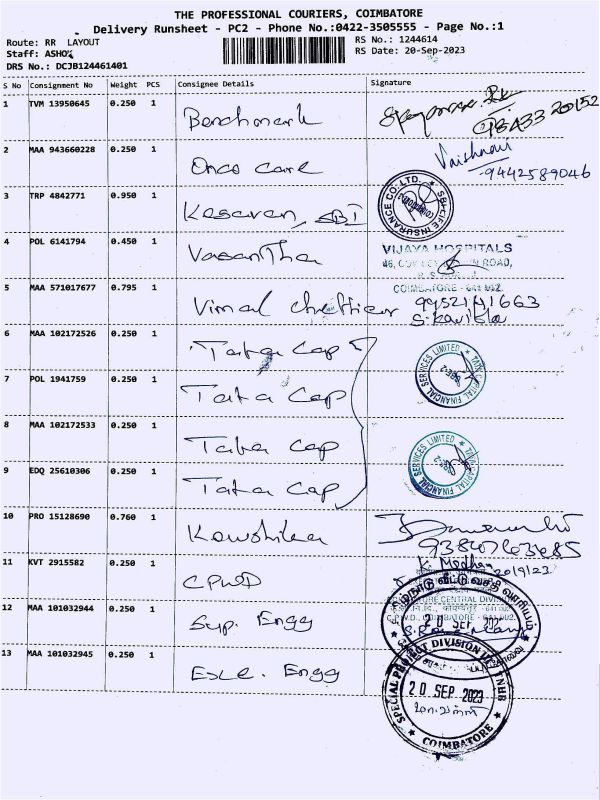 THE PROFESSIONAL COURIERS, COIMBATORE
Delivery Runsheet - PC2 - Phone No.:0422-3505555 - Page No.:1
Route: RR LAYOUT
RS No.: 1244614
Staff: ASHOK
RS Date: 20-Sep-2023
DRS No.: DCJB124461401
S No Consignment No Weight PCS Consignee Details Signature
1 TVM 13950645 0.250 1 Benchmark
98433 20152
2 MAA 943660228 0.250 1 Onco care Vaishnavi
-9442589046
3 TRP 4842771 0.950 1 Kesavan, SBI
SBI LIFE INSURANCE CO. LTD.
4 POL 6141794 0.450 1 Vasantha VIJAYA HOSPITALS
COIMBATORE - 641 002.
5 MAA 571017677 0.795 1 Vimal 9952141663
S. Kavitha
6 MAA 102172526 0.250 1 Tata Cap
TATA CAPITAL FINANCIAL SERVICES LIMITED
7 POL 1941759 0.250 1 Tata Cap
8 MAA 102172533 0.250 1 Tata Cap
TATA CAPITAL FINANCIAL SERVICES LIMITED
9 EDQ 25610306 0.250 1 Tata Cap
10 PRO 15128690 0.760 1 Kowshika
K. Madhan
20/9/23
11 KVT 2915582 0.250 1 CPWD
தமிழ்நாடு வீட்டு வசதி வாரியம்
12 MAA 101032944 0.250 1 Sup. Engg
20 SEP 202
13 MAA 101032945 0.250 1 Exe. Engg
SPECIAL PROJECT DIVISION TNHB
20 SEP 2023
COIMBATORE